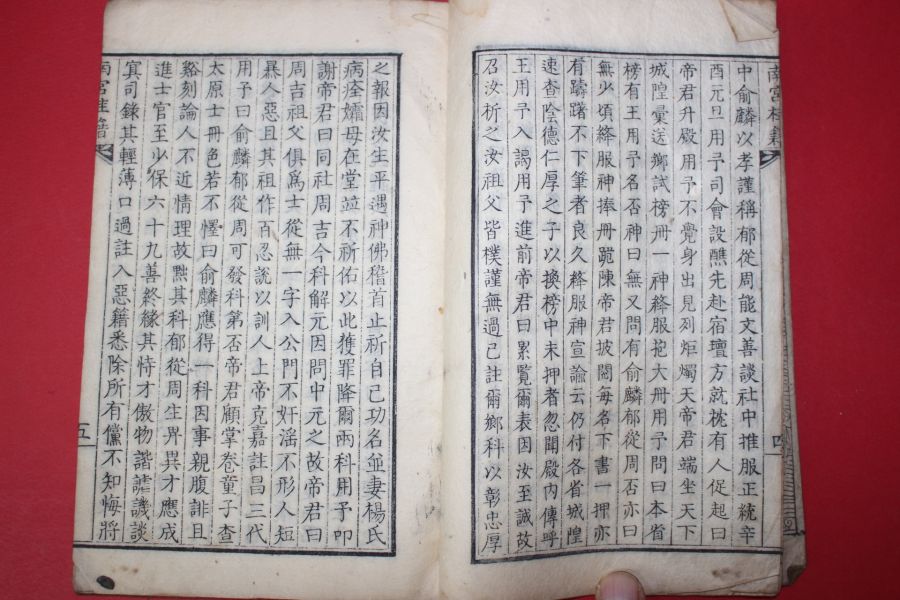 中俞麟以孝謹稱郁從周能文善談社中推服正統辛
酉元旦用予司會設醮先赴宿壇方就枕有人促起曰
帝君升殿用予不覺身出見列炬燭天帝君端坐天下
城隍彙送鄉試榜冊一神絳服抱大冊用予問曰本省
榜有王用予名否神曰無又問有俞麟郁從周否亦曰
無少頃絳服神捧冊跪陳帝君披閱每名下書一押亦
有躊躇不下筆者良久絳服神宣諭云仍付各省城隍
速查陰德仁厚之子以換榜中未押者忽聞殿內傳呼
王用予入謁用予進前帝君曰累覽爾表因汝至誠故
召汝析之汝祖父皆樸謹無過已註爾鄉科以彰忠厚
四
之報因汝生平遇神佛稽首止祈自己功名並妻楊氏
病痊孀母在堂並不祈佑以此獲罪降爾兩科用予叩
謝帝君曰同社周吉今科解元因問中元之故帝君曰
周吉祖父俱爲士從無一字入公門不奸淫不形人短
暴人惡且其祖作百忍說以訓人上帝克嘉註昌三代
用予曰俞麟郁從周可發科第否帝君顧掌卷童子查
太原士冊色若不懌曰俞麟應得一科因事親腹誹且
谿刻論人不近情理故黜其科郁從周生畀異才應成
進士官至少保六十九善終緣其恃才傲物諧謔譏談
冥司錄其輕薄口過註入惡籍悉除所有儻不知悔將
五